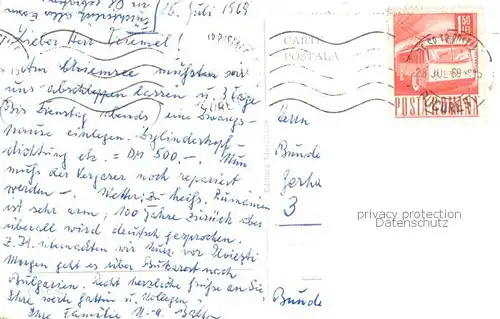 26. Juli 1969
Lieber Herr
Am Chiemsee mußten wir
uns abschleppen lassen u. 3 Tage
(Bis Dienstag abends) eine Zwangs-
pause einlegen. Zylinderkopf-
dichtung etc. = DM 500.-. Nun
muß der Vergaser noch repariert
werden -. Wetter: Zu heiß. Rumänien
ist sehr arm, 100 Jahre zurück aber
überall wird deutsch gesprochen.
Z.Zt. übernachten wir kurz vor Ploiesti
Morgen geht es über Bukarest nach
Bulgarien. Recht herzliche Grüße an Sie,
Ihre werte Gattin u. Kollegen.
Ihre Familie
CARTE
POSTALA
1,50 LEI
26 JUL 69
POSTA ROMANA
Herrn
Bunde
Gerha
3
Bunde
privacy protection
Datenschutz